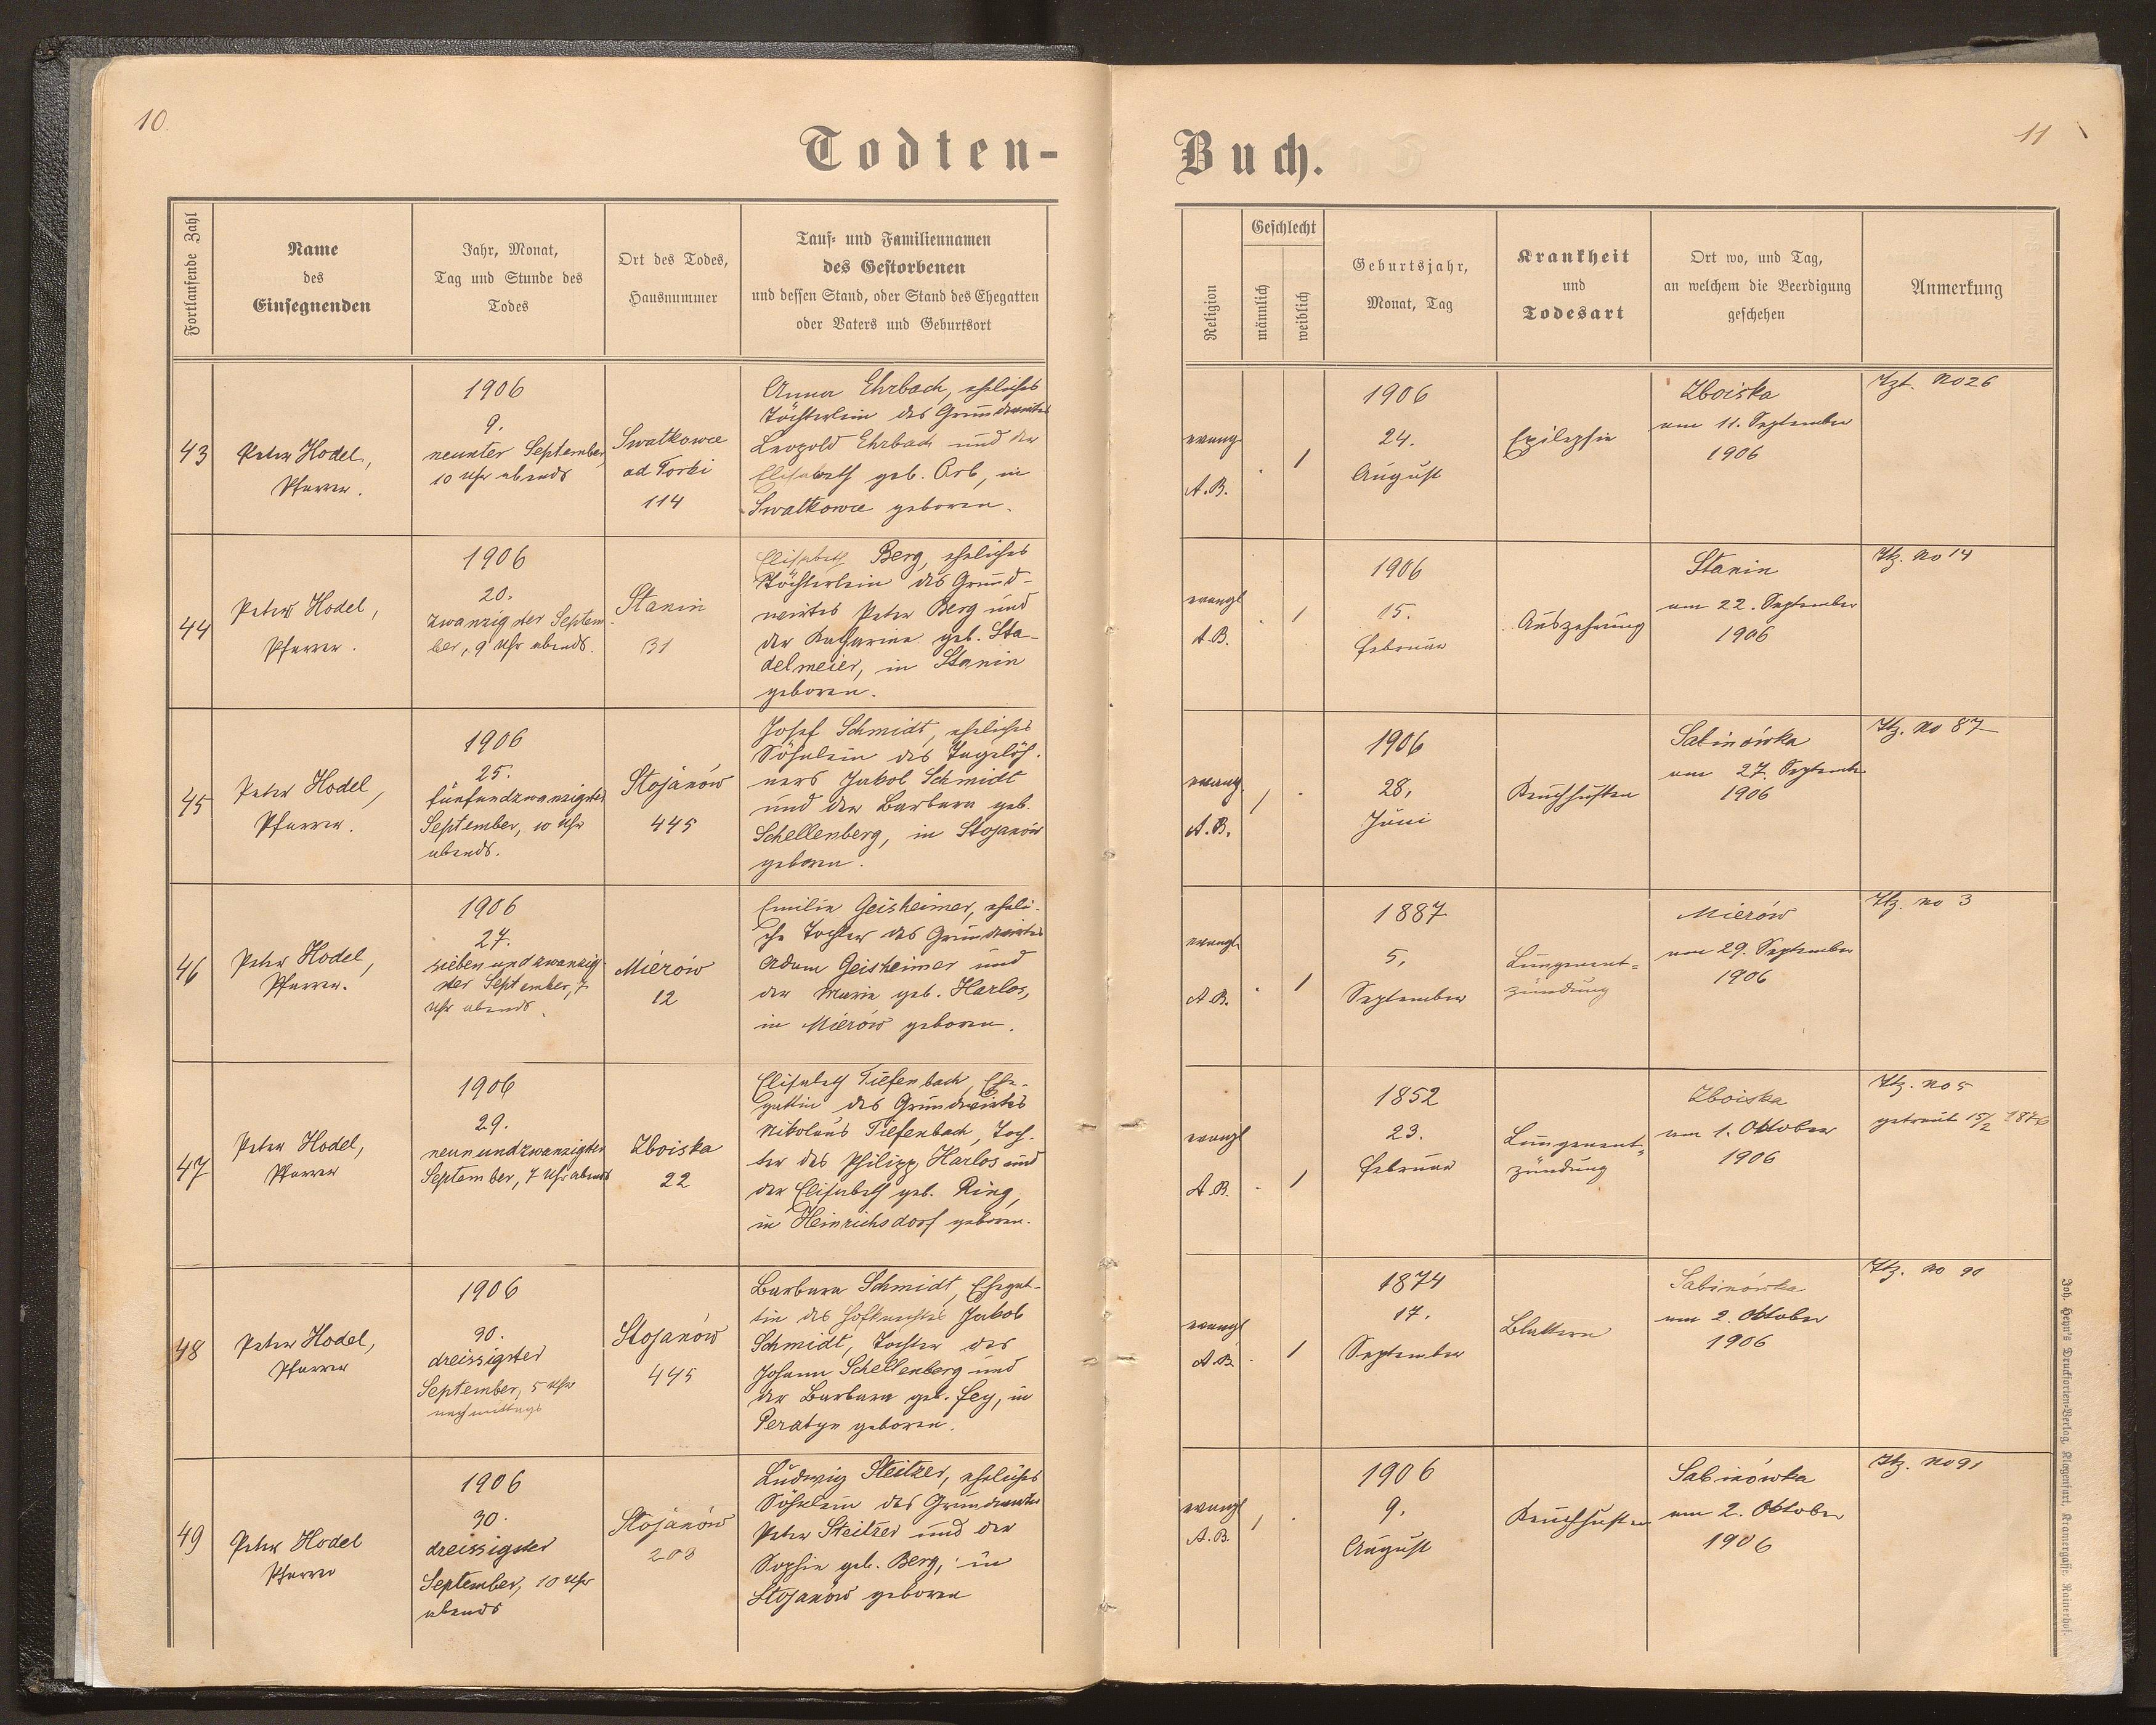 10
Todten-
Fortlaufende Zahl
Name
des
Einsegnenden
Jahr, Monat,
Tag und Stunde des
Todes
Ort des Todes,
Hausnummer
Tauf- und Familiennamen
des Gestorbenen
und dessen Stand, oder Stand des Ehegatten
oder Vaters und Geburtsort
43
Peter Hodel,
Pfarrer.
1906
9.
neunter September,
10 Uhr abends
Swatkowce
ad Torki
114
Anna Ehrbach, eheliches
Töchterlein des Grundwirtes
Leopold Ehrbach und der
Elisabeth geb. Orb, in
Swatkowce geboren.
44
Peter Hodel,
Pfarrer.
1906
20.
zwanzigster Septem
ber, 9 Uhr abends.
Stanin
31
Elisabeth Berg, eheliches
Töchterlein des Grund-
wirtes Peter Berg und
der Katharina geb. Sta-
delmeier, in Stanin
geboren.
45
Peter Hodel,
Pfarrer.
1906
25.
fünfundzwanzigster
September, 10 Uhr
abends.
Stojanów
445
Josef Schmidt, eheliches
Söhnlein des Tagelöh-
ners Jakob Schmidt
und der Barbara geb.
Schellenberg, in Stojanów
geboren.
46
Peter Hodel,
Pfarrer.
1906
27.
siebenundzwanzig-
ster September, 7
Uhr abends.
Mierów
12
Emilie Geisheimer, eheli-
che Tochter des Grundwirtes
Adam Geisheimer und
der Maria geb. Harlos,
in Mierów geboren.
47
Peter Hodel,
Pfarrer
1906
29.
neunundzwanzigster
September, 7 Uhr abends
Zboiska
22
Elisabeth Tiefenbach, Ehe-
gattin des Grundwirtes
Nikolaus Tiefenbach, Toch-
ter des Philipp Harlos und
der Elisabeth geb. Ring,
in Heinrichsdorf geboren.
48
Peter Hodel,
Pfarrer
1906
30.
dreissigster
September, 5 Uhr
nachmittags
Stojanów
445
Barbara Schmidt, Ehegat-
tin des Hofknechtes Jakob
Schmidt, Tochter des
Johann Schellenberg und
der Barbara geb. Fey, in
Peratyn geboren.
49
Peter Hodel
Pfarrer
1906
30.
dreissigster
September, 10 Uhr
abends
Stojanów
203
Ludwig Steitzer, eheliches
Söhnlein des Grundwirtes
Peter Steitzer und der
Sophie geb. Berg, in
Stojanów geboren
11
Buch.
Religion
Geschlecht
männlich
weiblich
Geburtsjahr,
Monat, Tag
Krankheit
und
Todesart
Ort wo, und Tag,
an welchem die Beerdigung
geschehen
Anmerkung
evang
A.B.
.
1
1906
24.
August
Epilepsie
Zboiska
am 11. September
1906
No 26
evangl
A.B.
.
1
1906
15.
Februar
Auszehrung
Stanin
am 22. September
1906
No 14
evang
A.B.
1
.
1906
28.
Juni
Keuchhusten
Sabinówka
am 27. September
1906
No 87
evangl.
A.B.
.
1
1887
5.
September
Lungenent-
zündung
Mierów
am 29. September
1906
No 3
evangl
A.B.
.
1
1852
23.
Februar
Lungenent-
zündung
Zboiska
am 1. Oktober
1906
No 5
getraut 15/2 1876
evangl
A.B.
.
1
1874
17.
September
Blattern
Sabinówka
am 2. Oktober
1906
No 90
evangl
A.B.
1
.
1906
9.
August
Keuchhusten
Sabinówka
am 2. Oktober
1906
No 91
Joh. Heyn's Drucksorten-Verlag, Klagenfurt, Kramergasse, Rainerhof.